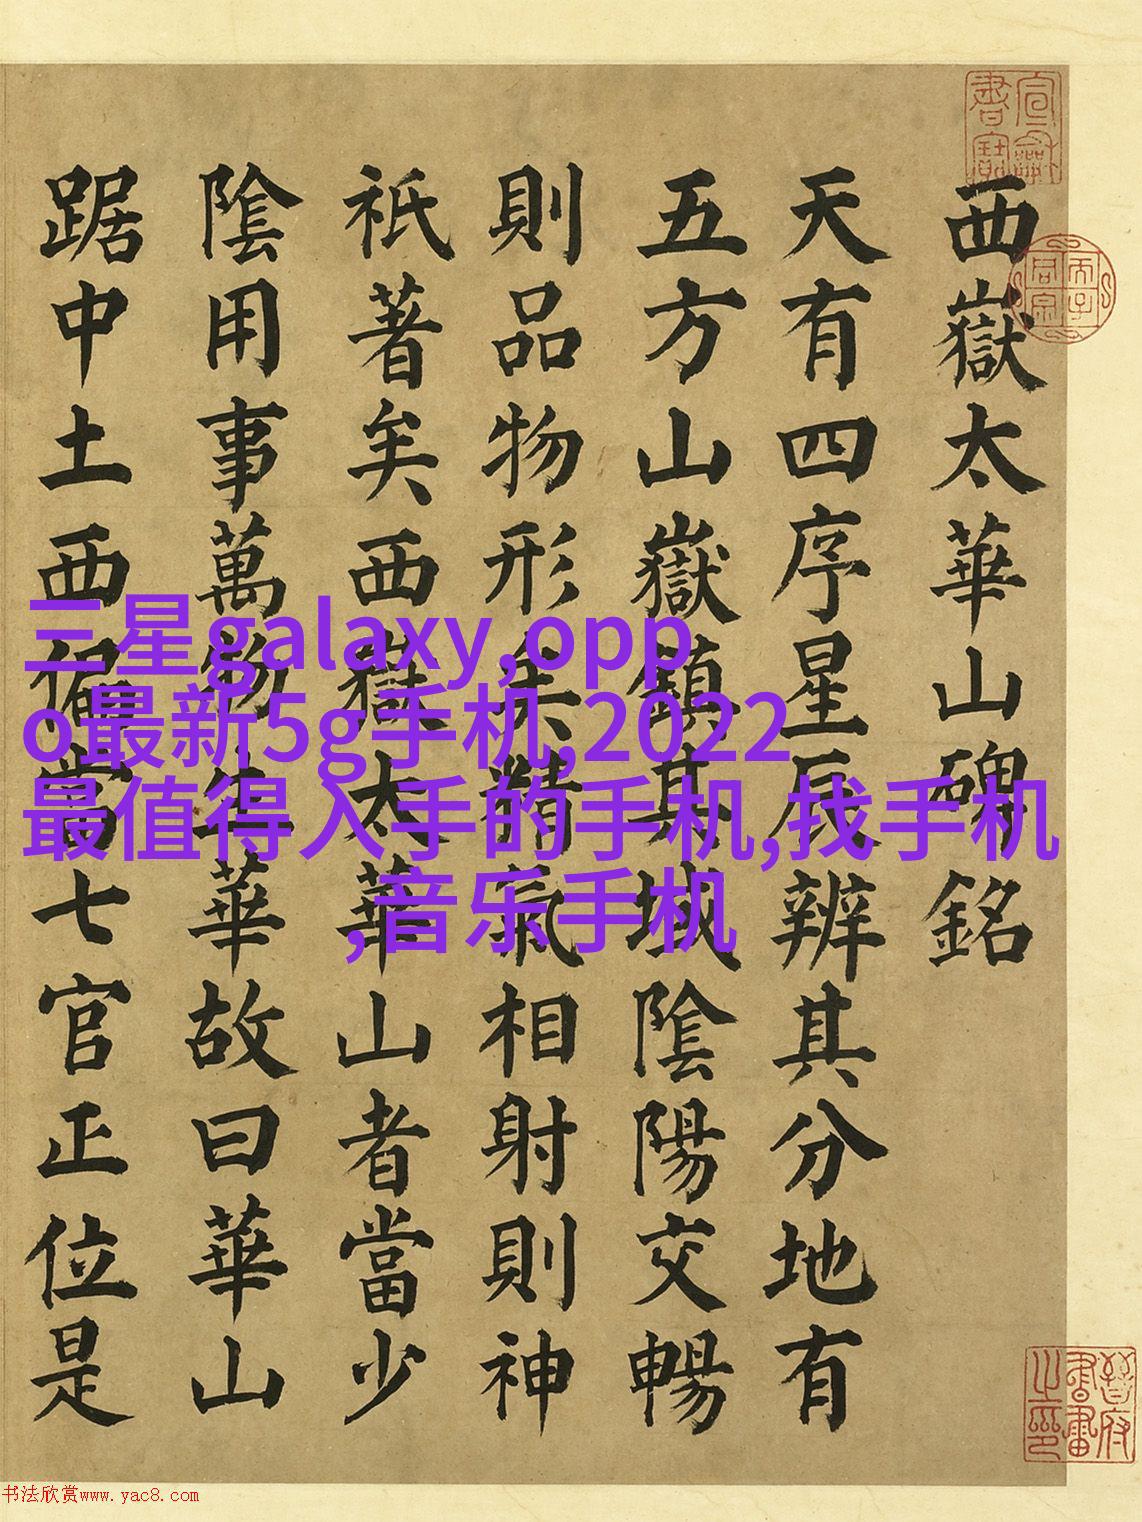 西嶽太華山碑銘
天有四序星辰辨其分地有
五方山嶽鎮其域陰陽交暢
則品物形矣精氣相射則神
祇著矣西嶽太華山者當少
陰用事萬物生華故曰華山
踞中土西偏當七官正位是
三星galaxy,opp
o最新5g手机,2022
最值得入手的手机,找手机
,音乐手机
晉府
書畫
之印
书法欣赏www.yac8.com